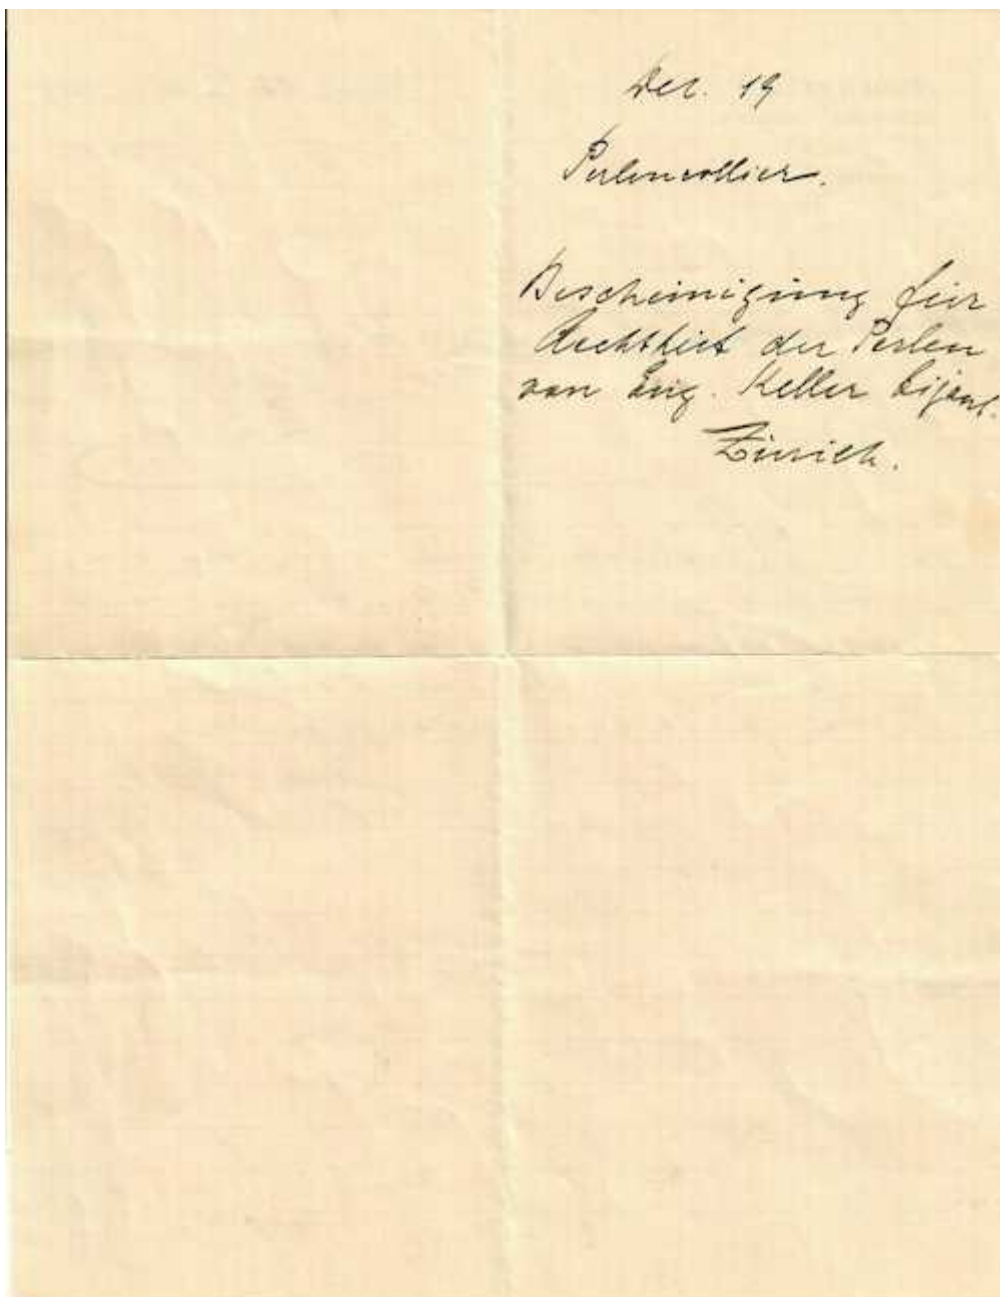 Dec. 19
Perlencollier.
Bescheinigung für
Aechtheit der Perlen
von Eug. Keller bijout.
Zürich.